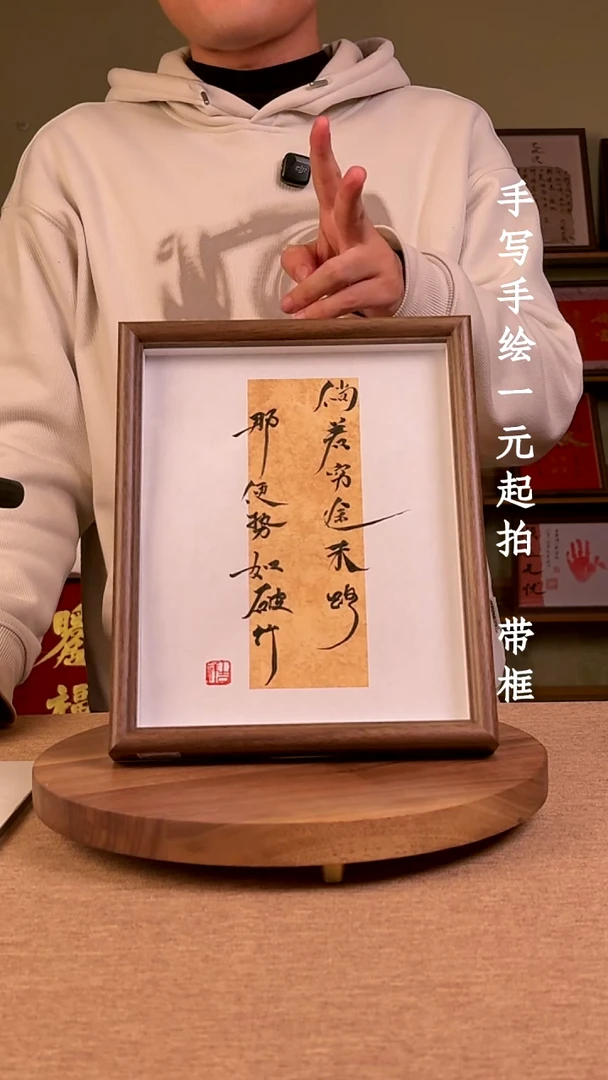 倘若穷途末路
那便势如破竹
手写手绘一元起拍 带框
福